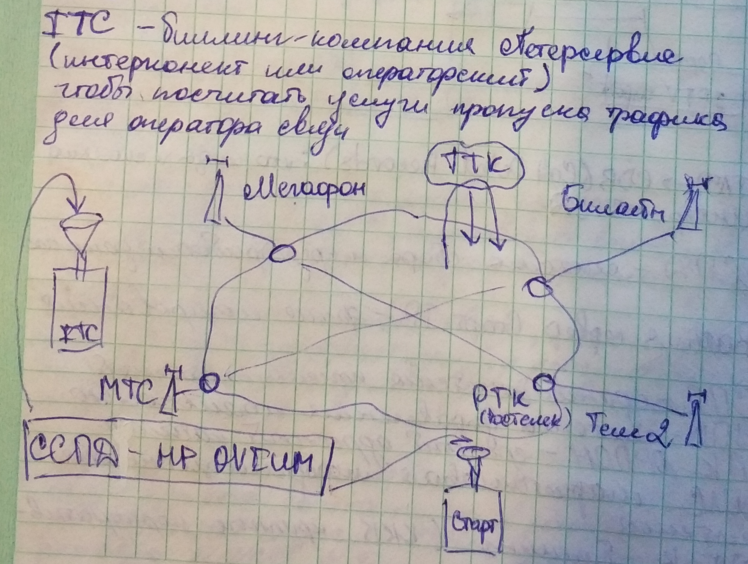 ITC - биллинг-компания Петерсервис
(интерконект или операторский)
чтобы посчитать услуги пропуска трафика
для оператора связи
ТТК
Мегафон
Билайн
ITC
МТС
РТК
(Ростелек)
Теле2
ССПД - HP OVIUM
Старт